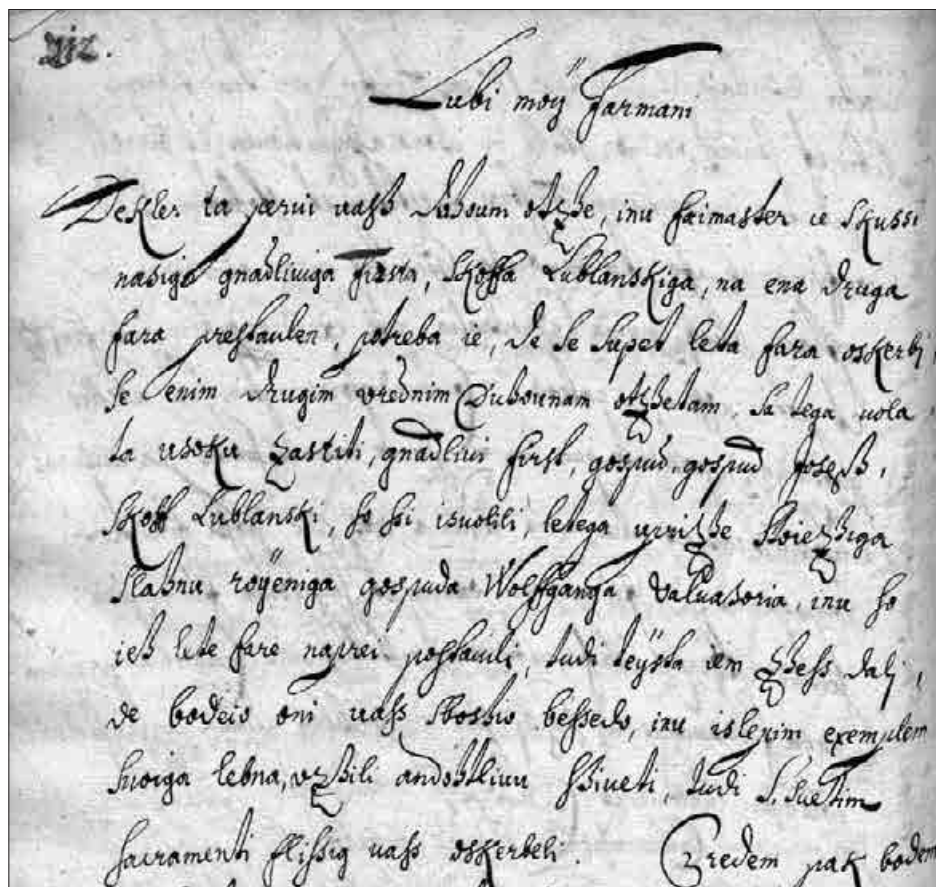 Lubi moÿ farmani
Dekler ta pervi vash duhouni otzhe, inu faimaster ie skussi
nadiga gnadliviga firsta, Skoffa Lublanskiga, na ena druga
fara prestaulen, potreba ie, de se supet leta fara oskerbj,
se enim drugim vrednim Duhounam otzhetam, sa tega vola
ta vsoku zastiti, gnadlivi first, gospud, gospud Joseph,
Skoff Lublanski, so si isvolili, letega prizhe stoiezhiga
slahnu roÿeniga gospuda Wolffganga Valvasoria, inu so
ieh lete fare naprei postavili, tudi teÿsta iem zhess dalj,
de bodeio oni vass s boshio bessedo, inu islepim exemplem
suoiga lebna, vzhili andohtlivu shiveti, tudi s. svetim
sacramenti flissig vass oskerbeli. Zredem pak bodem